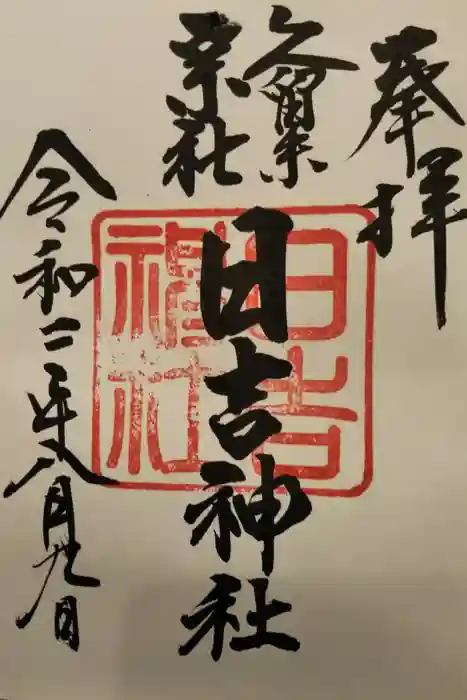 奉拝
久留米
宗社
日吉神社
令和二年八月九日
日吉
神社